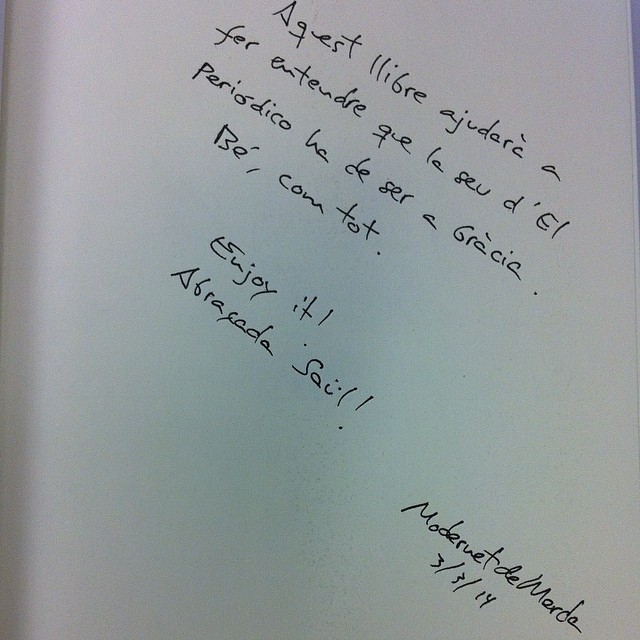 Aquest llibre ajudarà a
fer entendre que la seu d'El
Periódico ha de ser a Gràcia.
Bé, com tot.
Enjoy it!
Abraçada Saül!
Modernet de Merda
3/3/14